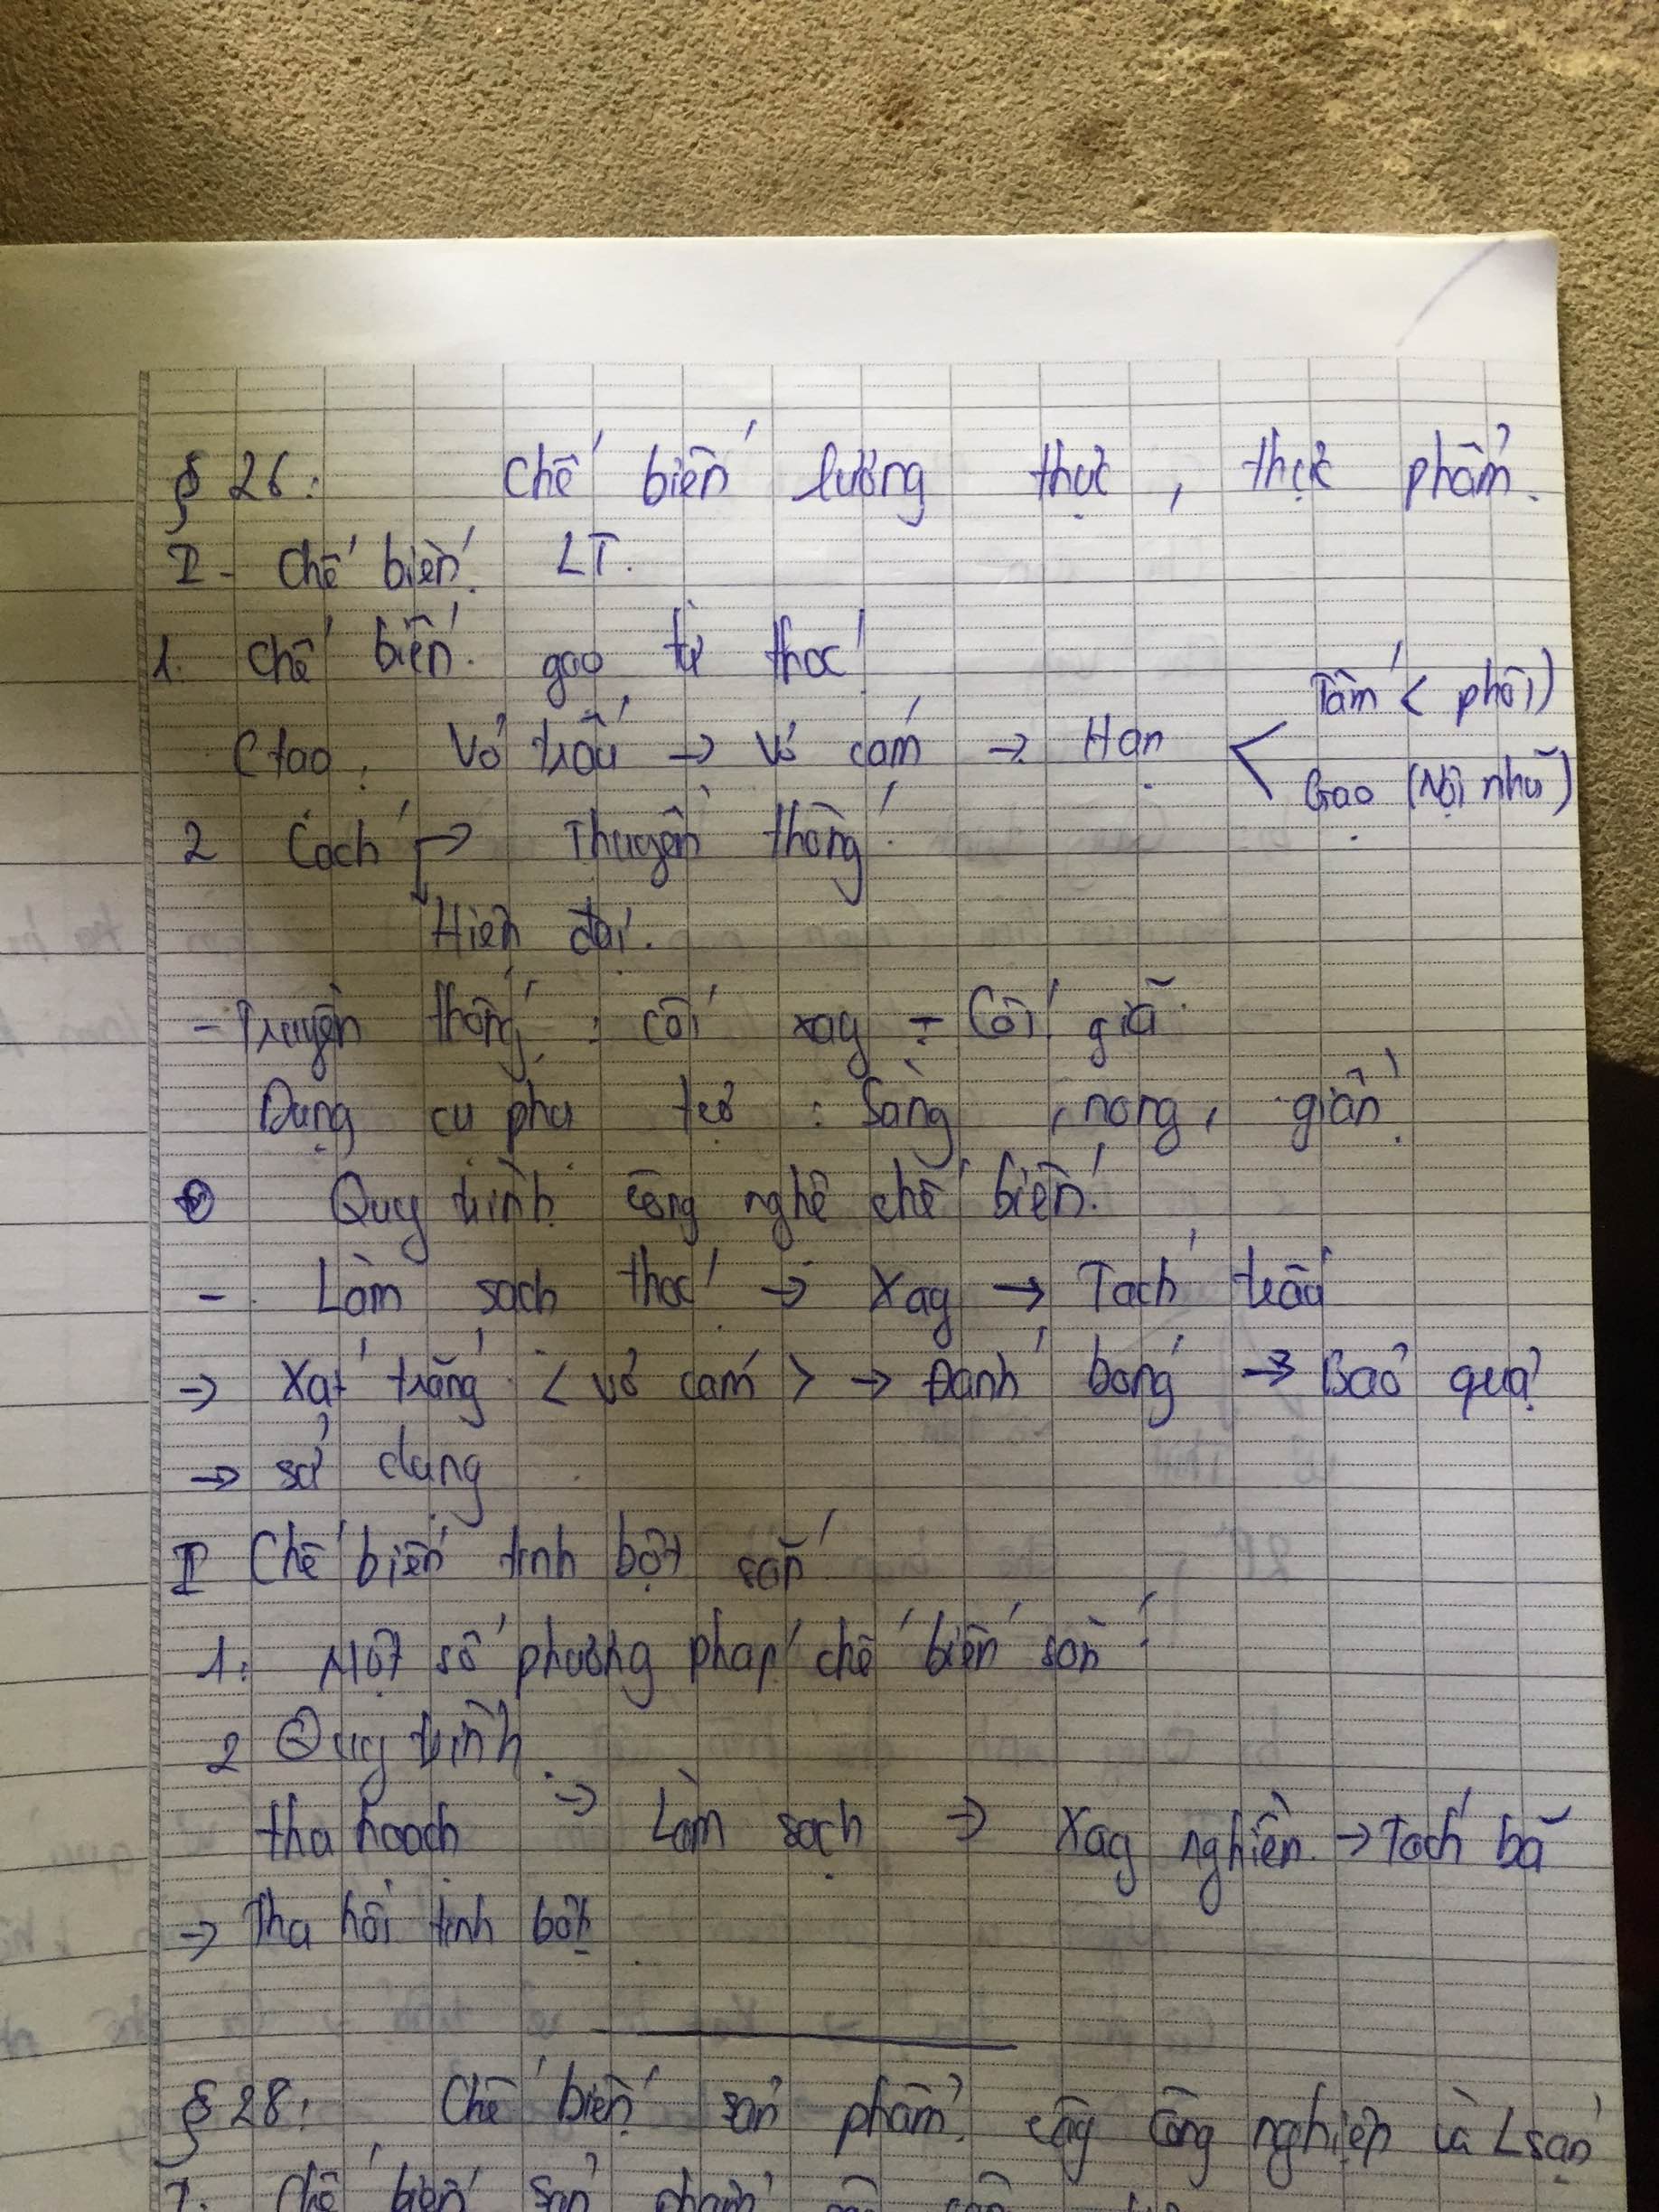 § 26: Chế biến lương thực, thực phẩm.
I - Chế biến LT.
1. Chế biến gạo từ thóc
Ctạo: Vỏ trấu → Vỏ cám → Hạt < Tấm < phôi)
Gạo (Nội nhũ)
2 Cách → Thuyền thống
Hiện đại.
- Truyền thống: cối xay - Cối giã
Dụng cụ phụ trợ: Sàng, nong, giần
Quy trình công nghệ chế biến
- Làm sạch thóc → Xay → Tách trấu
→ Xát trắng < vỏ cám > → Đánh bóng → Bảo quả
→ sử dụng
II Chế biến tinh bột sắn
1: Một số phương pháp chế biến sắn
2 Quy trình
thu hoạch → Làm sạch → Xay nghiền → Tách bã
→ Thu hồi tinh bột
§ 28: Chế biến sản phẩm cây công nghiệp và Lsản
I. Chế biến sản phẩm